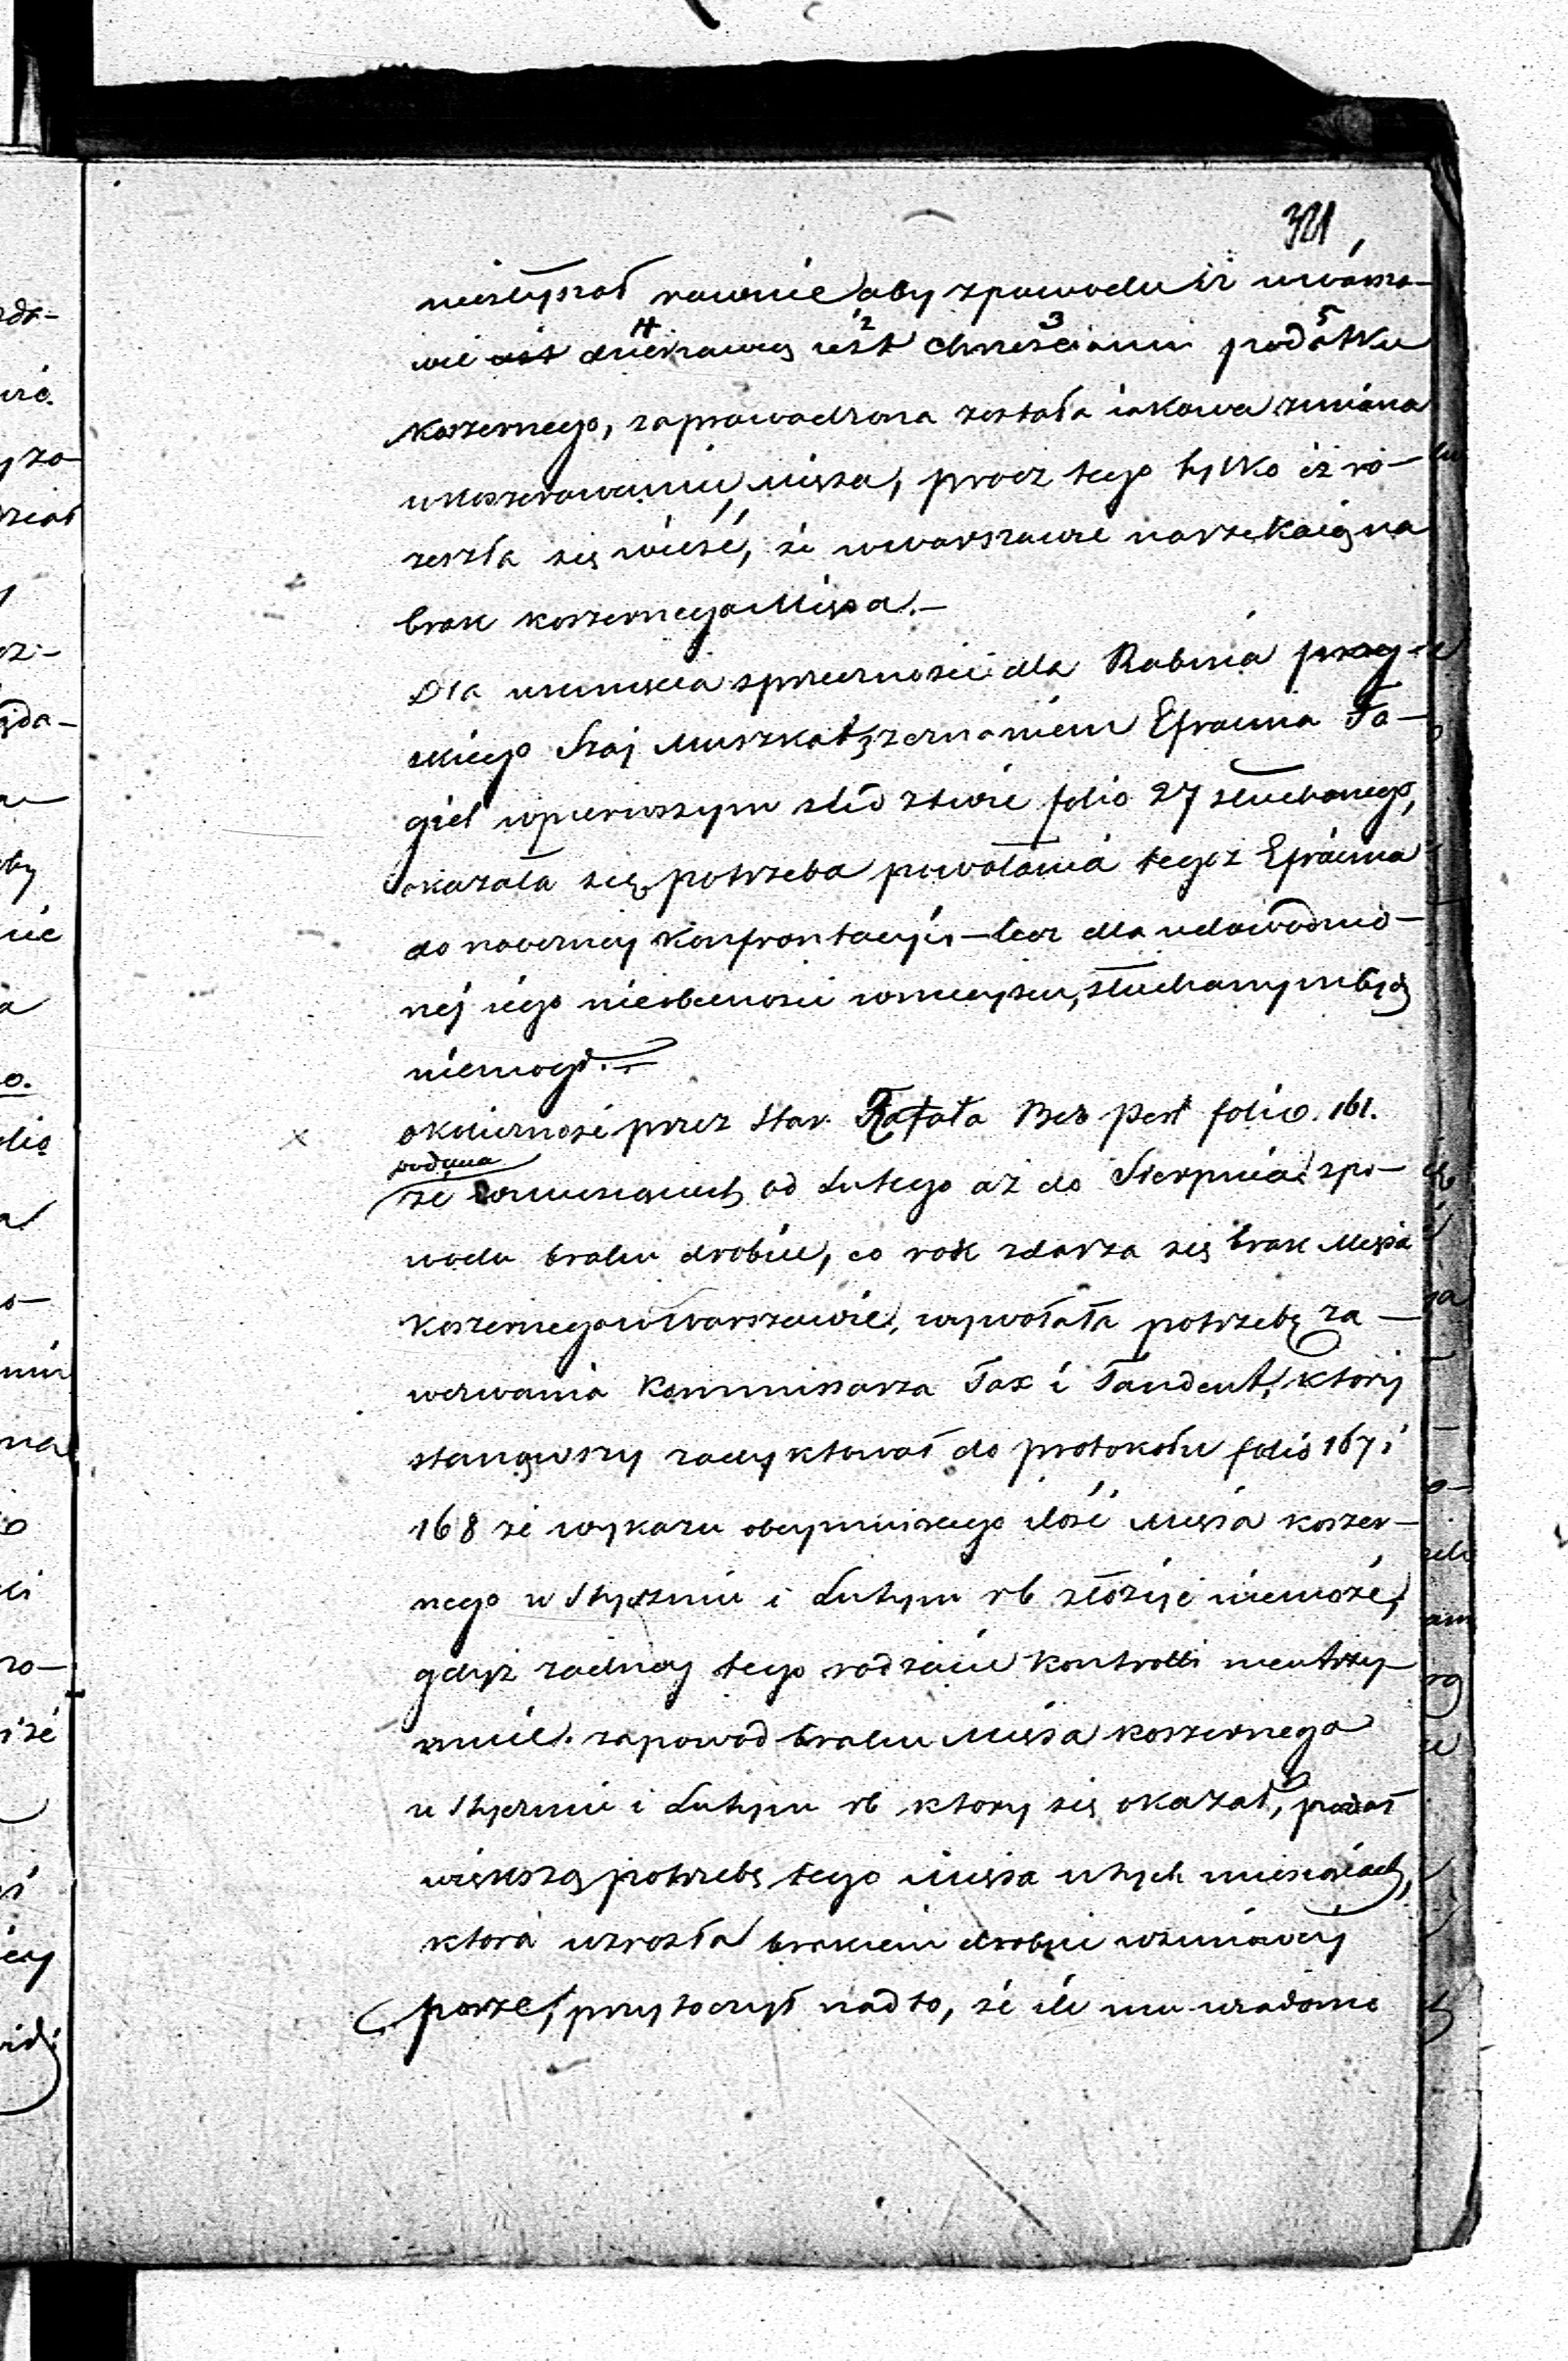 321
niesłyszał równie aby zpowodu iż wWarsza-
wie dzierzawcą iest chrześcianin podatku
koszernego, zaprowadzona została iakowa zmiana
wkoszerowaniu mięsa, procz tego tylko iż ro-
zeszła się wieść, że wWarszawie narzekaią na
brak koszernego Mięsa.—
Dla usunięcia sprzeczności dla Rabina
skiego Szaj Muszkat, zeznaniem Efraima Fa-
giel wpierwszym śledztwie folio 27 słuchanego,
okazała się potrzeba powołania tegoż Efraima
do naoczney Konfrontacyi — lecz dla udowodnio-
nej iego nieobecności wmieyscu, słuchanym bydź
niemogł.
Okoliczność przez Star. Rafała Ber Perl folio. 161.
podana
że wmiesiącach od Lutego aż do Sierpnia zpo-
wodu braku drobiu, co rok zdarza się brak Mięsa
koszernego wWarszawie, wywołała potrzebę za-
wezwania Kommissarza Tax i Tandent, ktory
stanąwszy zadyktował do protokołu folio 167 i
168 że wykazu obeymuiącego ilość Mięsa koszer-
nego w Styczniu i Lutym rb złożyć niemoże,
gdyż żadney tego rodzaiu kontrolli nieutrzy-
muie. zapowod braku Mięsa koszernego
w Styczniu i Lutym rb ktory się okazał, podał
większą potrzebę tego mięsa wtych miesiącach,
ktora wzrosła brakiem drobiu wzimowey
porze, przytoczył nadto, że ile mu wiadomo